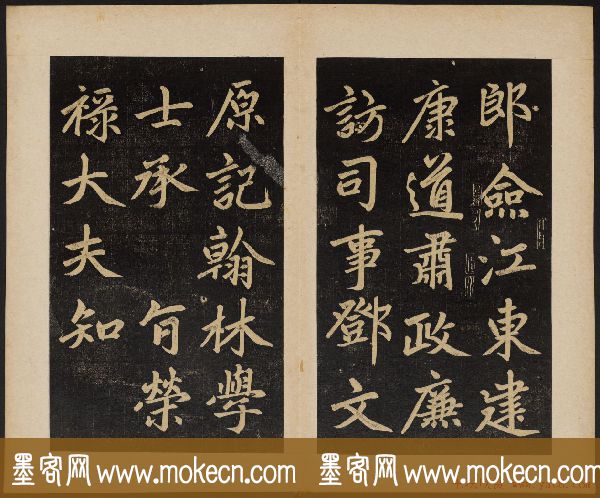 郎僉江東建
康道肅政廉
訪司事鄧文
原記翰林學
士承 旨榮
祿大夫知
墨客网 www.mokecn.com 墨客网 www.mokecn.com